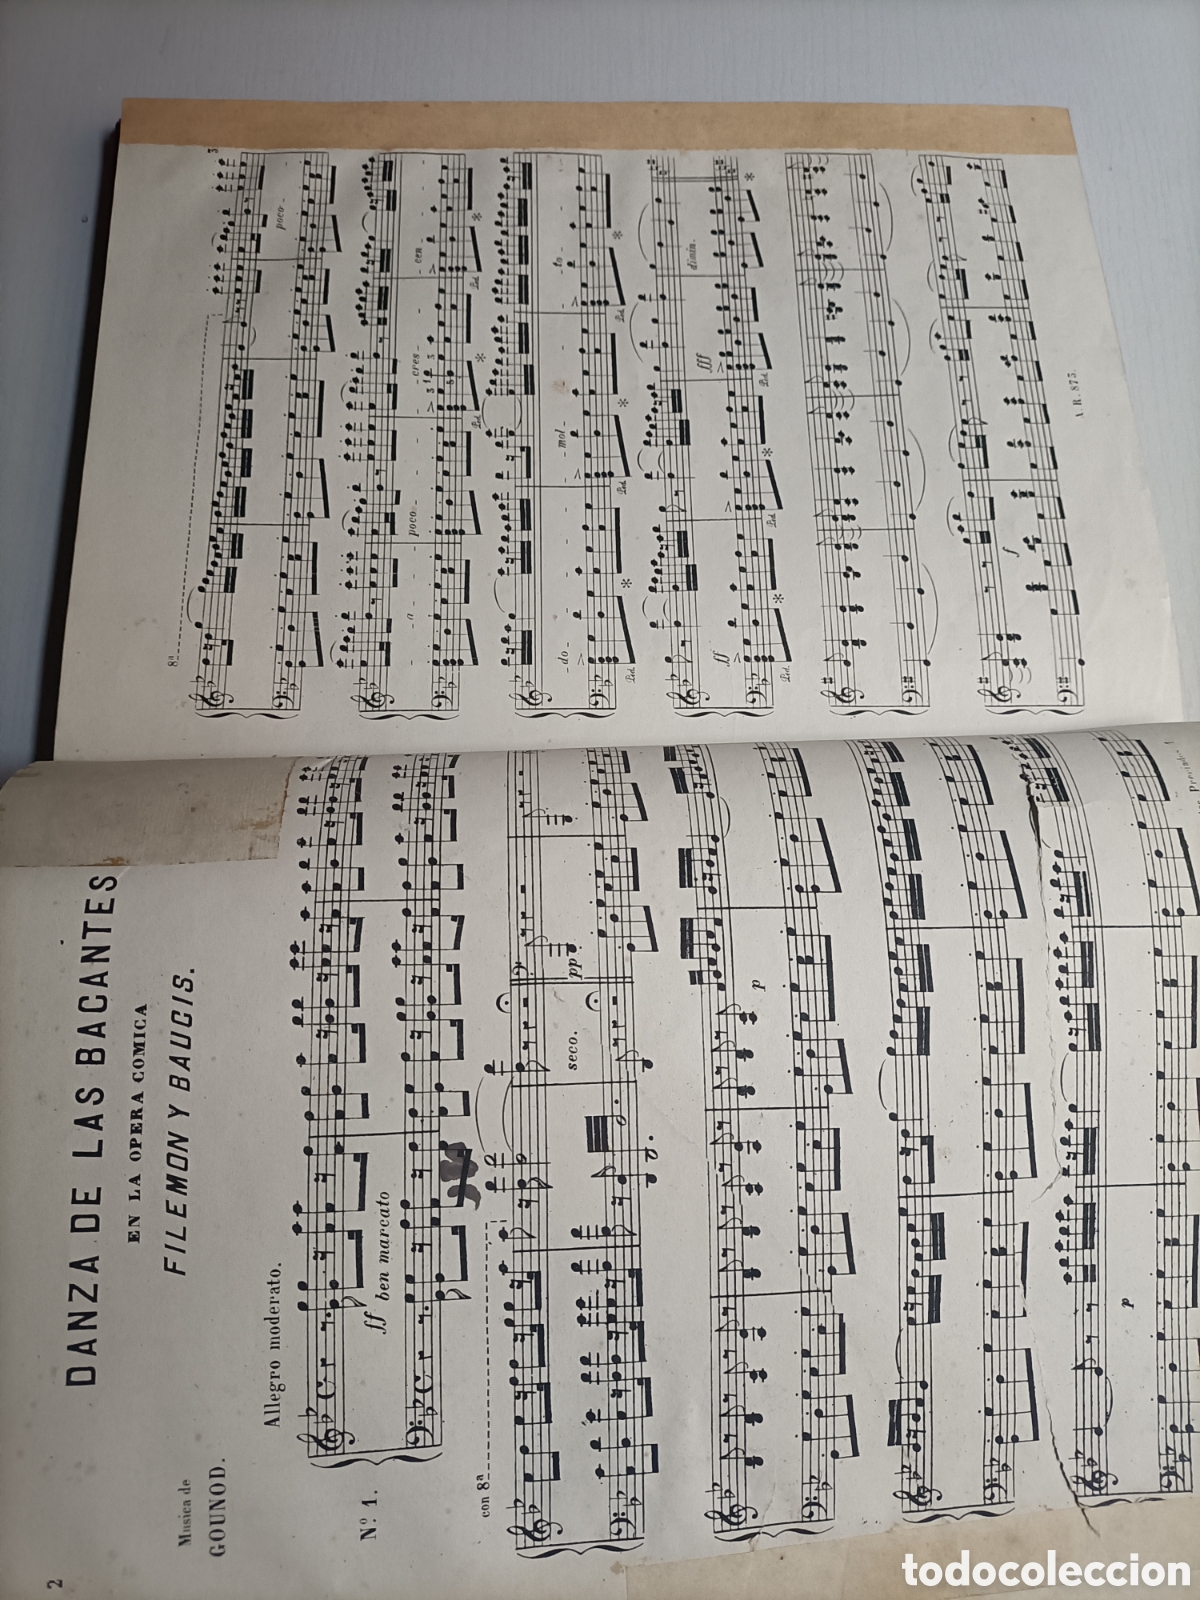 2
DANZA DE LAS BACANTES
EN LA OPERA COMICA
FILEMON Y BAUCIS.
Musica de
GOUNOD.
Allegro moderato.
Nº 1.
ff ben marcato
con 8ª
seco.
pp
p
p
3
8ª
poco
a poco cres cen
do mol to
ff fff dimin.
f
A. R. 875.
todocoleccion